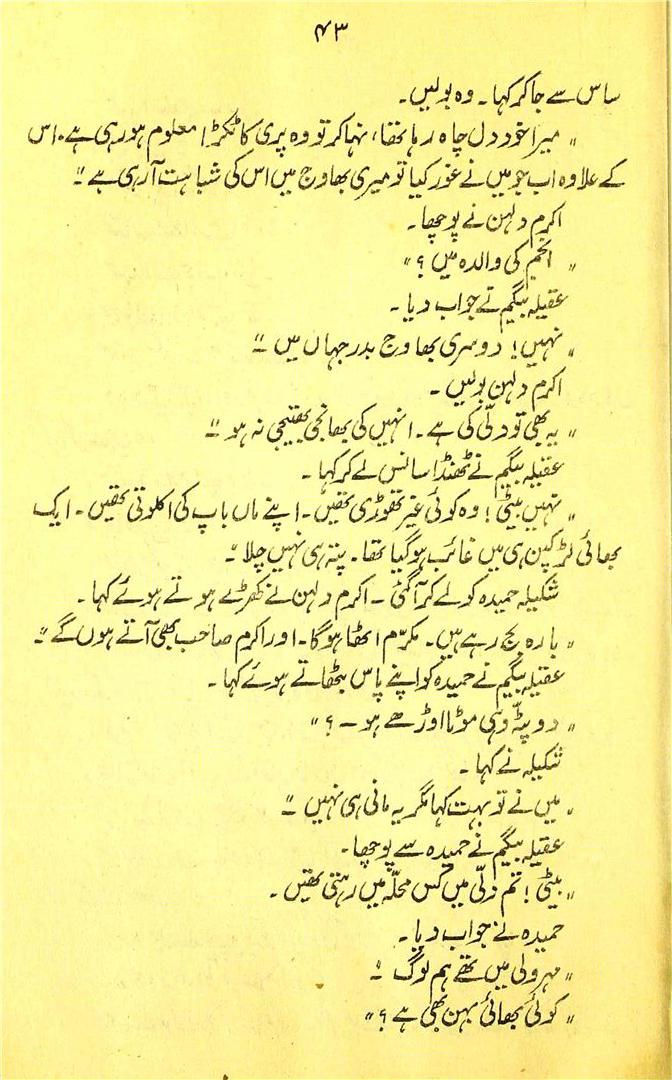 ۴۳
ساس سے جا کر کہا۔ وہ بولیں۔
" میرا خود دل چاہ رہا تھا، نہا کر تو وہ پری کا ٹکڑا معلوم ہو رہی ہے۔ اس
کے علاوہ اب جو میں نے غور کیا تو میری بھاوج میں اس کی شباہت آ رہی ہے "
اکرم دلہن نے پوچھا۔
" انجم کی والدہ میں ؟ "
عقیلہ بیگم نے جواب دیا۔
" نہیں! دوسری بھاوج بدر جہاں میں "
اکرم دلہن بولیں۔
" یہ بھی تو دلّی کی ہے۔ انہیں کی بھانجی بھتیجی نہ ہو "
عقیلہ بیگم نے ٹھنڈا سانس لے کر کہا۔
" نہیں بیٹی! وہ کوئی غیر تھوڑی تھیں۔ اپنے ماں باپ کی اکلوتی تھیں۔ ایک
بھائی لڑکپن ہی میں غائب ہو گیا تھا۔ پتہ ہی نہیں چلا "
شکیلہ حمیدہ کو لے کر آ گئی۔ اکرم دلہن نے کھڑے ہوتے ہوئے کہا۔
" بارہ بج رہے ہیں۔ مکرّم اٹھا ہو گا۔ اور اکرم صاحب بھی آتے ہوں گے "
عقیلہ بیگم نے حمیدہ کو اپنے پاس بٹھاتے ہوئے کہا۔
" دوپٹّہ وہی موٹا اوڑھے ہو ــ ؟ "
شکیلہ نے کہا۔
" میں نے تو بہت کہا مگر یہ مانی ہی نہیں "
عقیلہ بیگم نے حمیدہ سے پوچھا۔
" بیٹی! تم دلّی میں کس محلّہ میں رہتی تھیں۔
حمیدہ نے جواب دیا۔
" مہرولی میں تھے ہم لوگ "
" کوئی بھائی بہن بھی ہے ؟ "